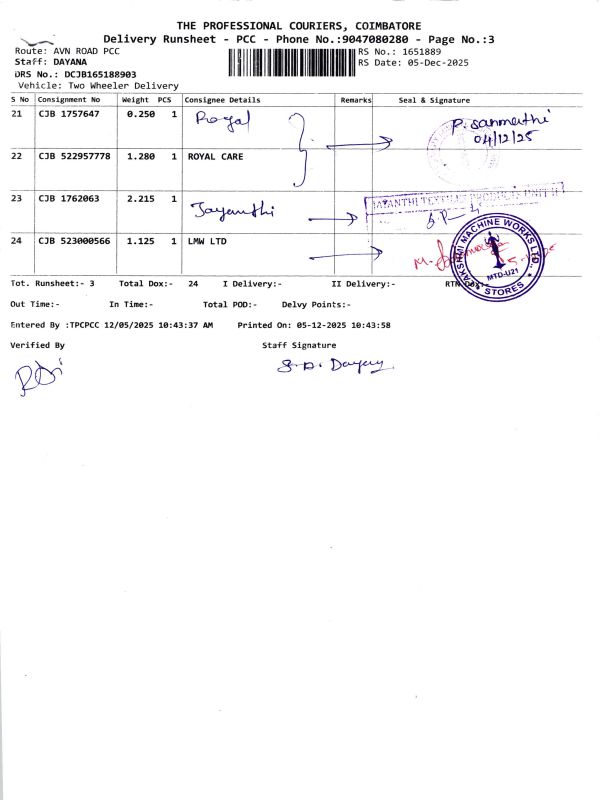 THE PROFESSIONAL COURIERS, COIMBATORE
Delivery Runsheet - PCC - Phone No.:9047080280 - Page No.:3
Route: AVN ROAD PCC RS No.: 1651889
Staff: DAYANA RS Date: 05-Dec-2025
DRS No.: DCJB165188903
Vehicle: Two Wheeler Delivery
S No Consignment No Weight PCS Consignee Details Remarks Seal & Signature
21 CJB 1757647 0.250 1 Royal P. Sanmathi
04/12/25
22 CJB 522957778 1.280 1 ROYAL CARE
23 CJB 1762063 2.215 1 Jayanthi JAYANTHI TEXTILE PRODUCTS UNIT II
24 CJB 523000566 1.125 1 LMW LTD
LAKSHMI MACHINE WORKS LTD.,
MTD-U21
* STORES *
Tot. Runsheet:- 3 Total Dox:- 24 I Delivery:- II Delivery:-
Out Time:- In Time:- Total POD:- Delvy Points:-
Entered By :TPCPCC 12/05/2025 10:43:37 AM Printed On: 05-12-2025 10:43:58
Verified By Staff Signature
S. D. Dayany